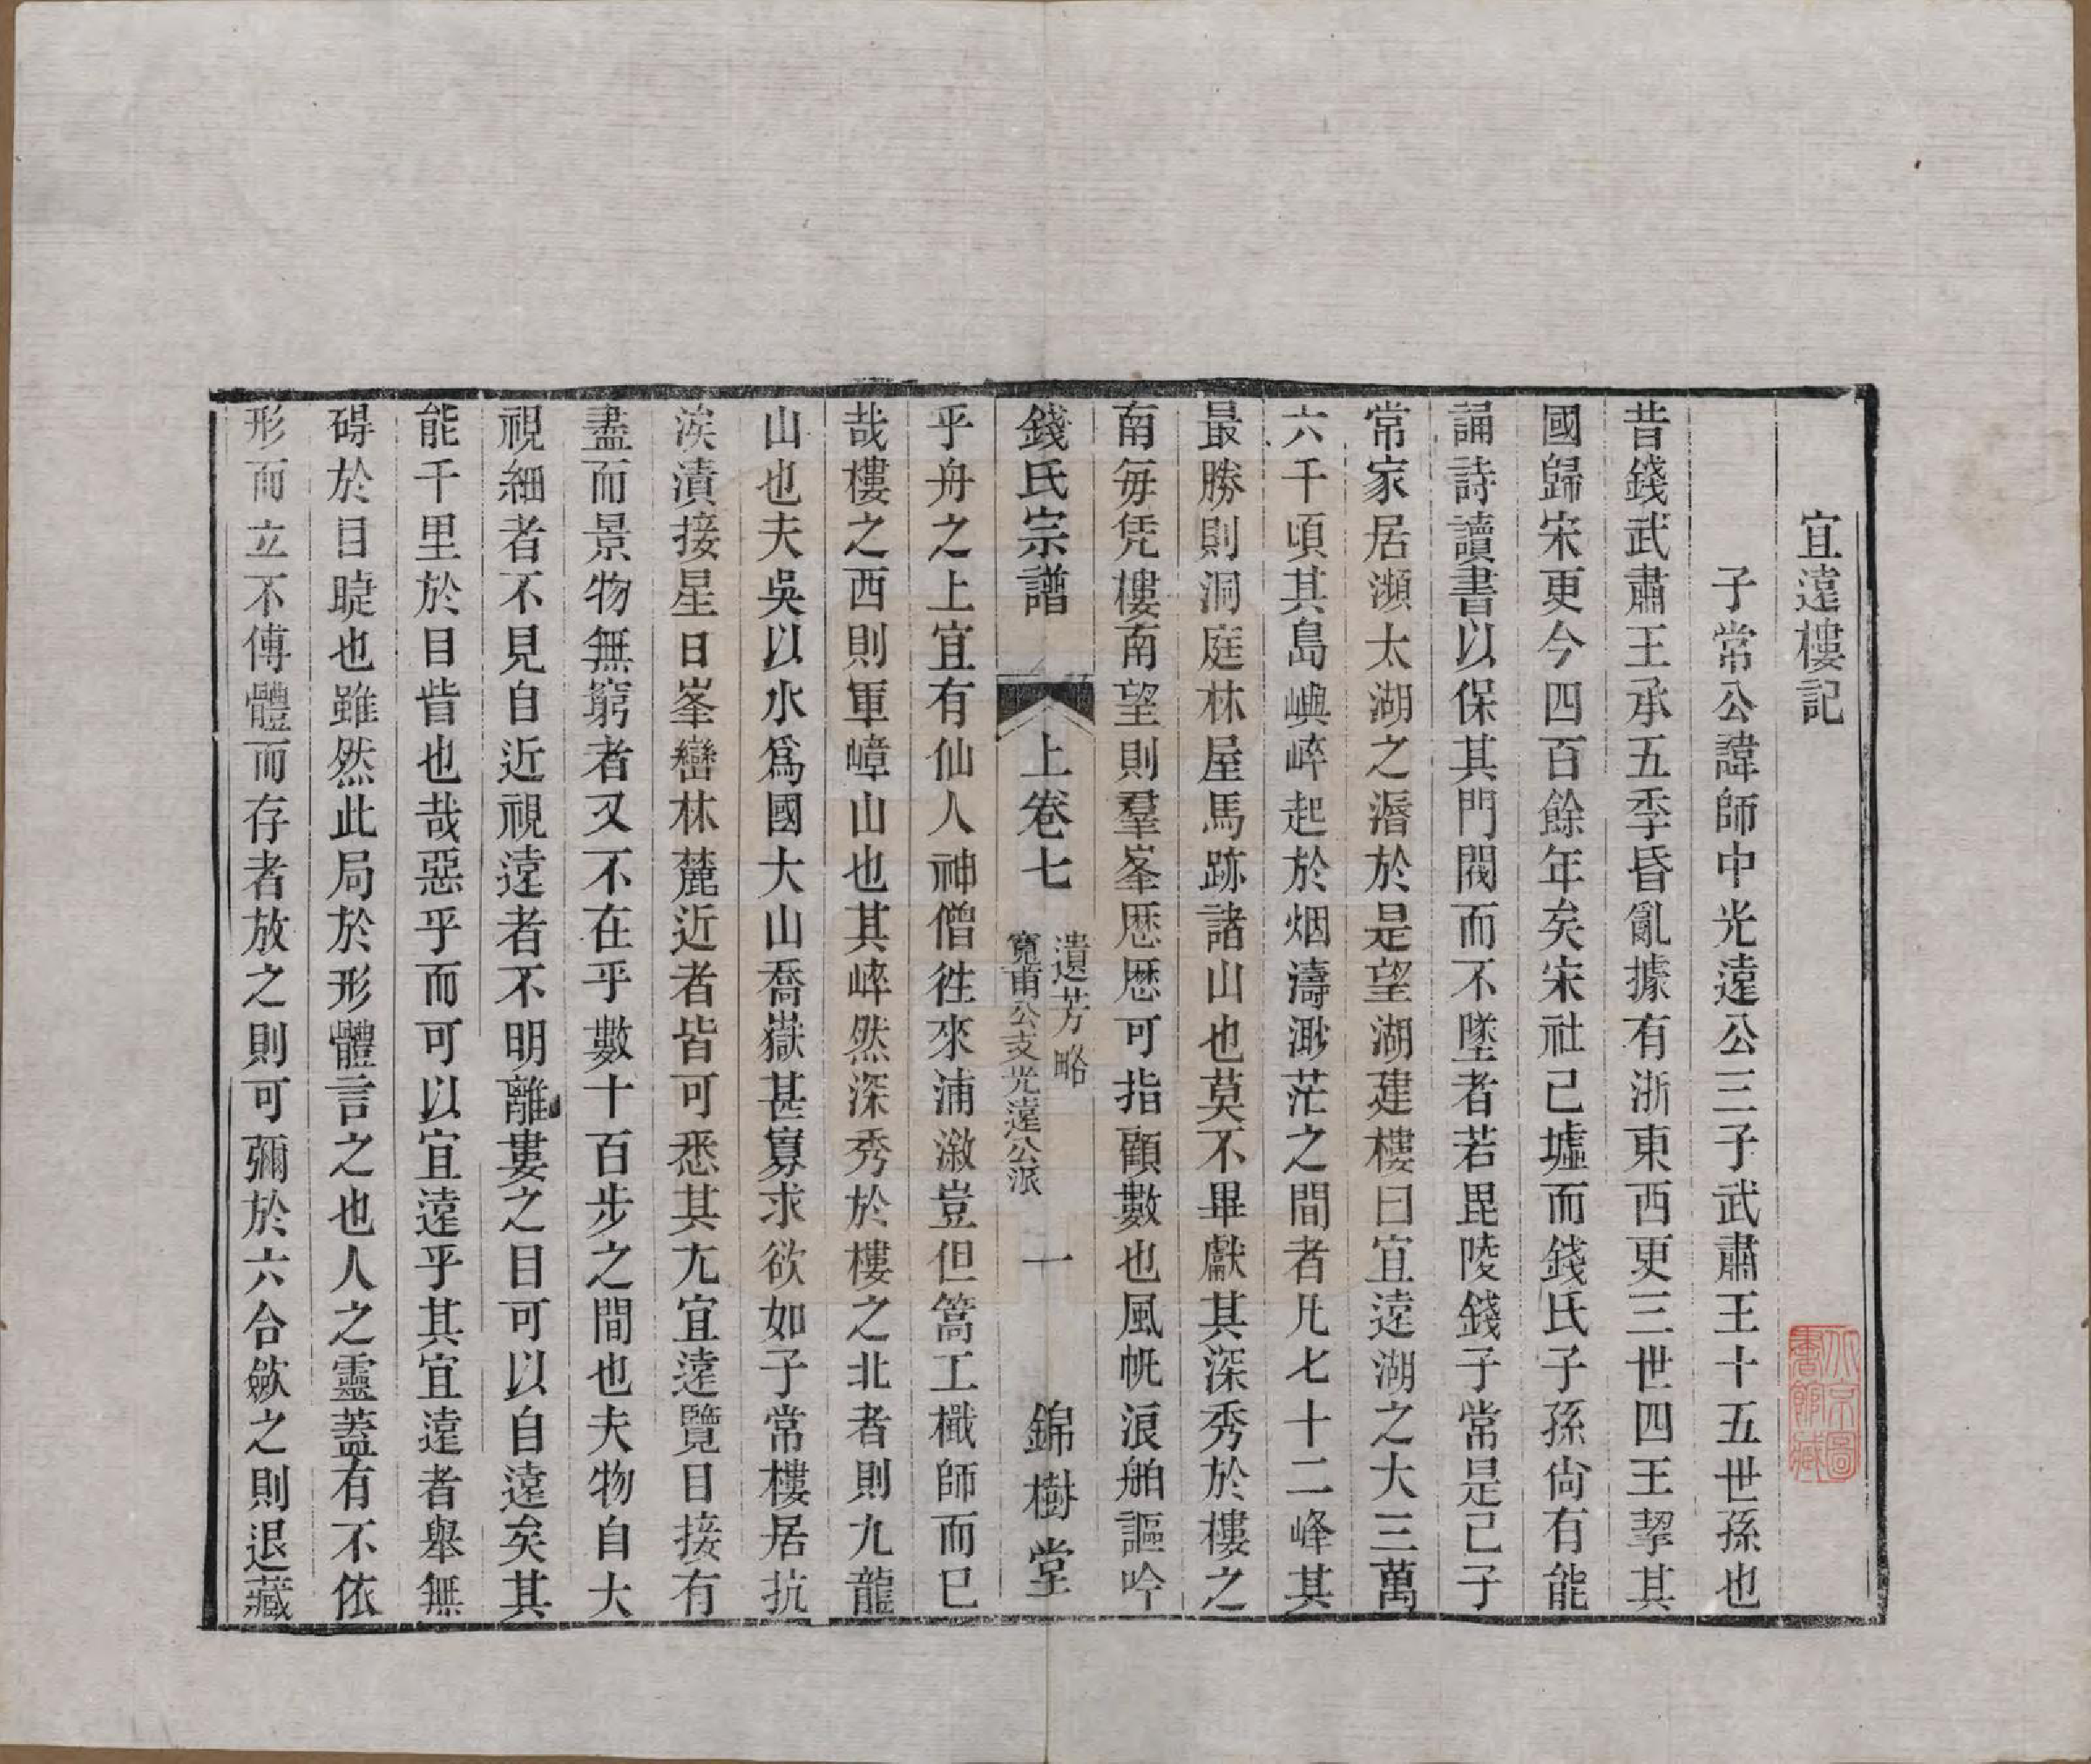 宜遠樓記
子常公諱師中光遠公三子武肅王十五世孫也
昔錢武肅王承五季昏亂據有浙東西更三世四王挈其
國歸宋更今四百餘年矣宋社已墟而錢氏子孫尙有能
誦詩讀書以保其門閥而不墜者若毘陵錢子常是已子
常家居瀕太湖之漘於是望湖建樓曰宜遠湖之大三萬
六千頃其島嶼崪起於烟濤渺茫之間者凡七十二峰其
最勝則洞庭林屋馬跡諸山也莫不畢獻其深秀於樓之
南每凭樓南望則羣峯歷歷可指顧數也風帆浪舶謳吟
錢氏宗譜 上卷七 遺芳略 寬甫公支光遠公派 一 錦樹堂
乎舟之上宜有仙人神僧徃來浦漵豈但篙工檝師而已
哉樓之西則軍嶂山也其崪然深秀於樓之北者則九龍
山也夫吳以水爲國大山喬嶽甚寡求欲如子常樓居抗
涘濆接星日峯巒林麓近者皆可悉其尤宜遠覽目接有
盡而景物無窮者又不在乎數十百步之間也夫物自大
視細者不見自近視遠者不明離婁之目可以自遠矣其
能千里於目眥也哉惡乎而可以宜遠乎其宜遠者舉無
碍於目睫也雖然此局於形體言之也人之靈蓋有不依
形而立不傳體而存者放之則可彌於六合斂之則退藏
北京圖書館藏